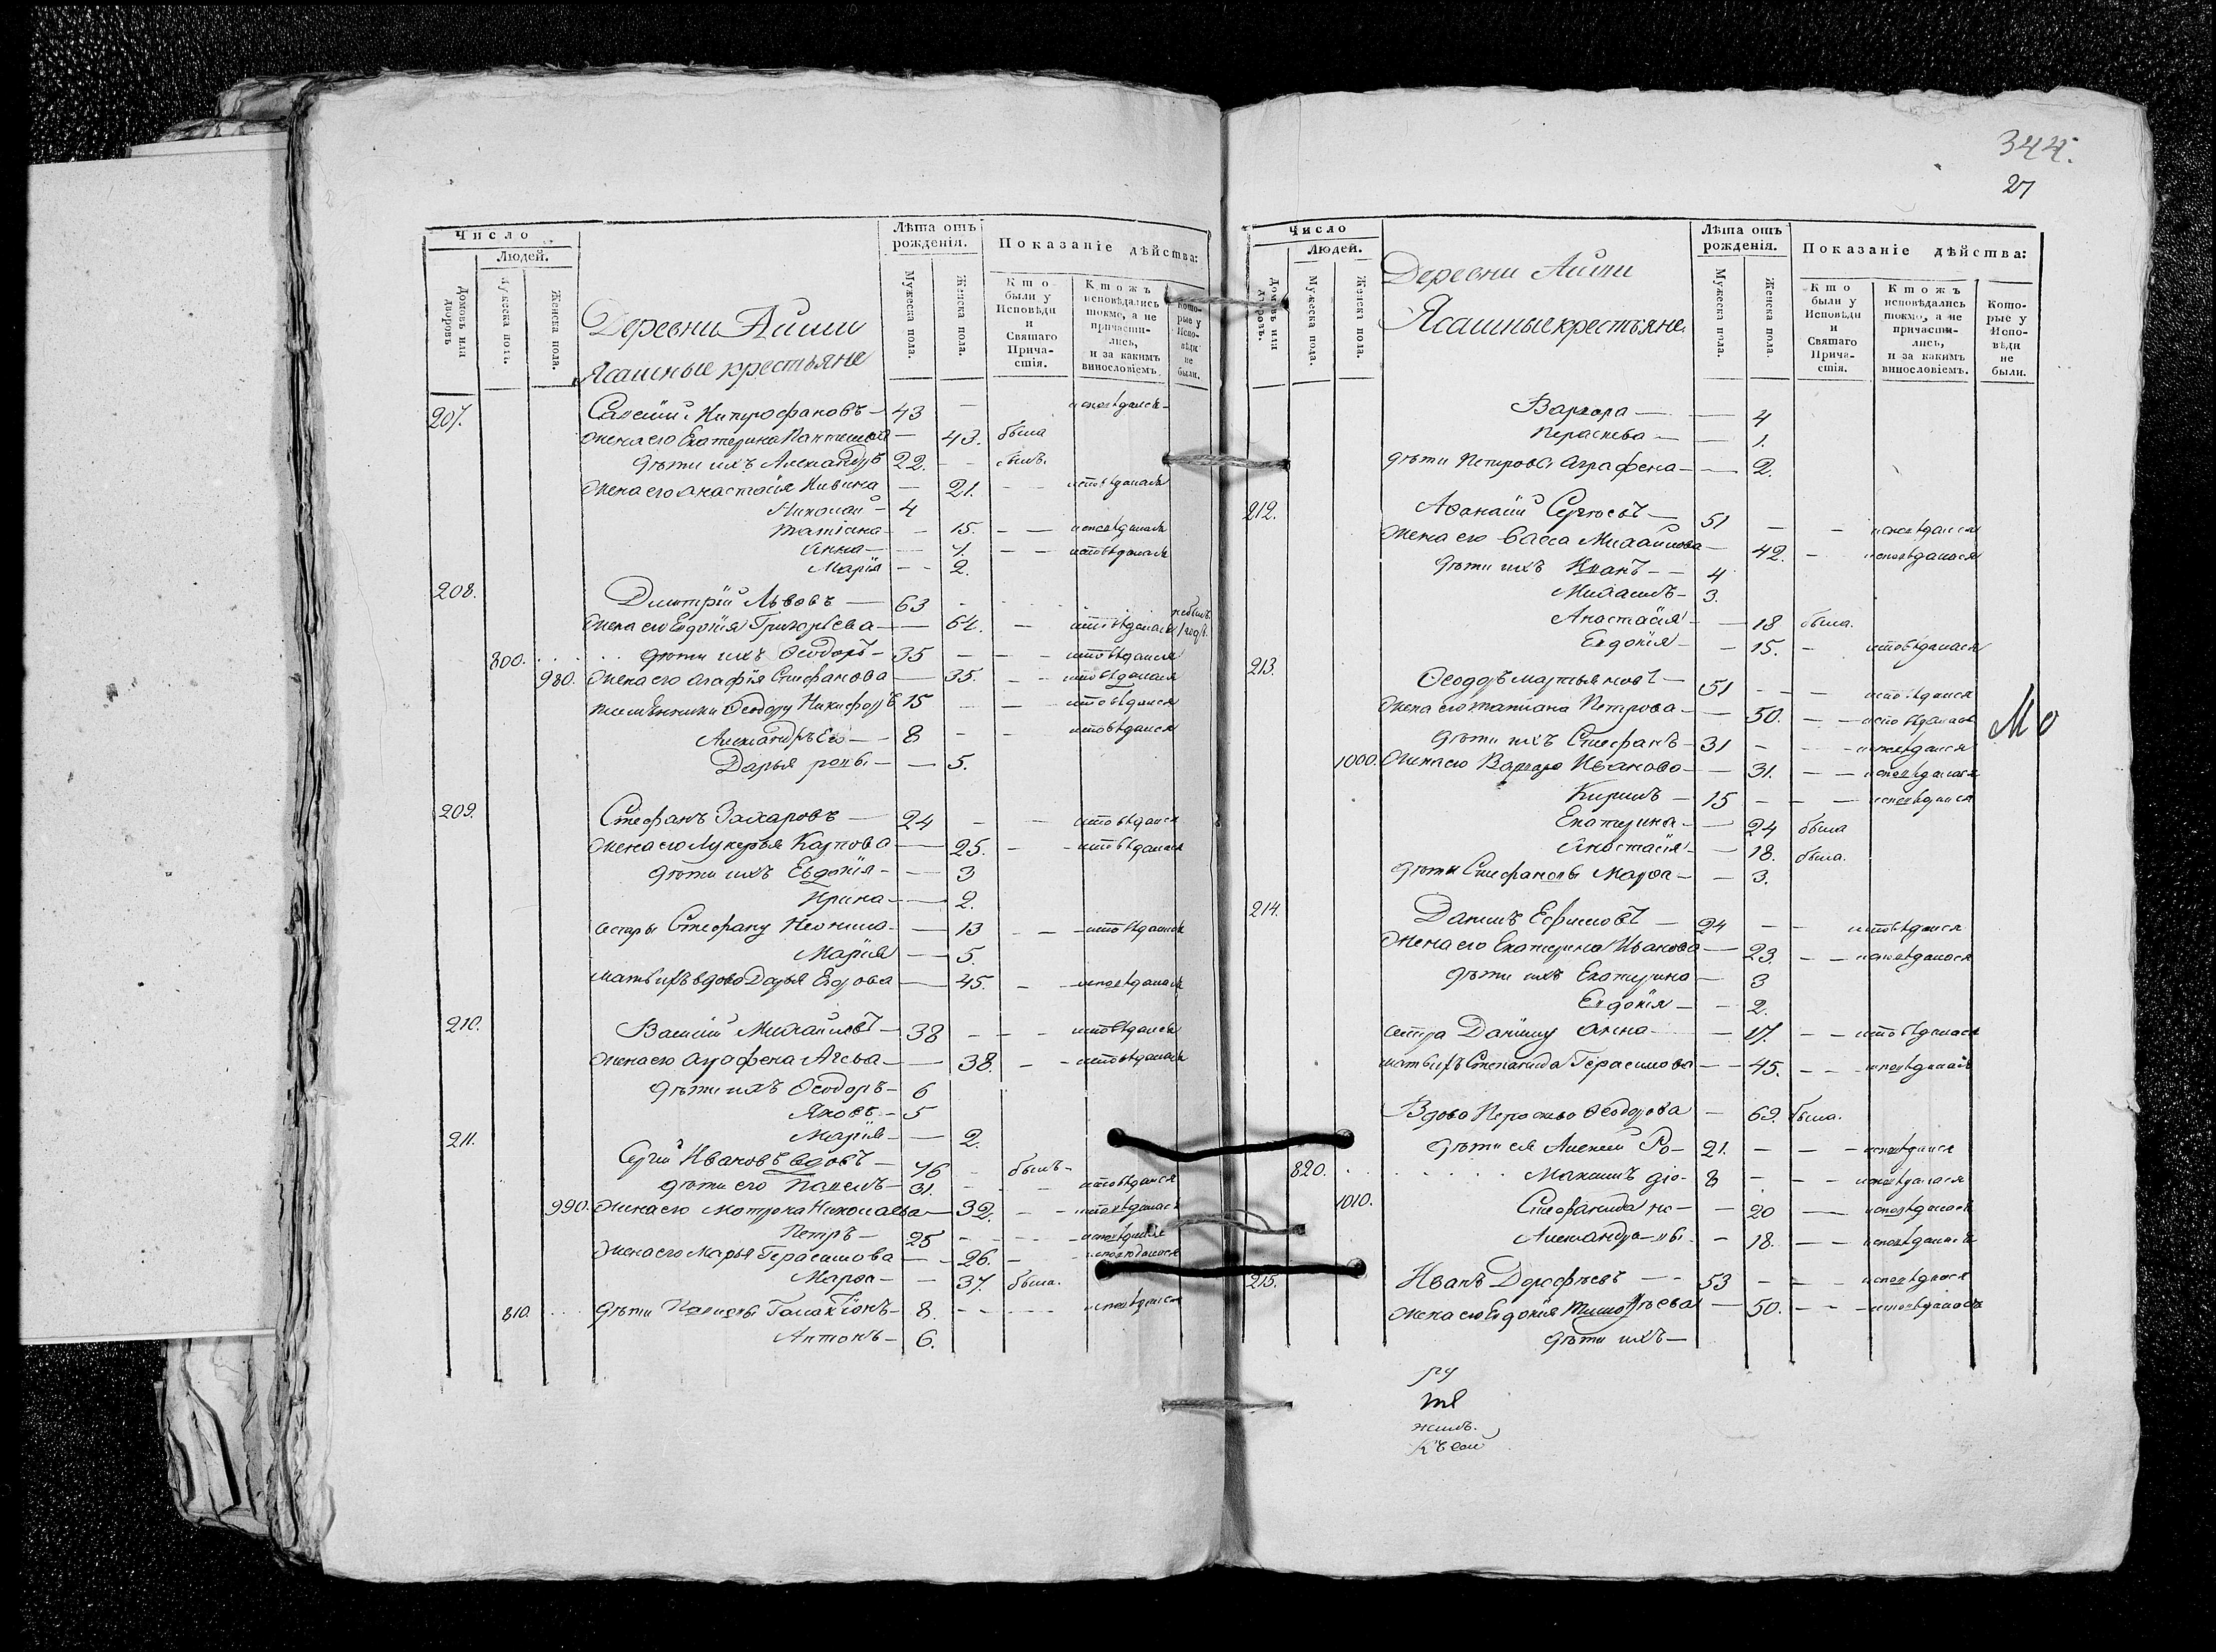 Число
Людей.
Домовъ или дворовъ
Мужеска пола.
Женска пола.
Лѣта отъ рожденія.
Мужеска пола.
Женска пола.
Показаніе дѣйства:
Кто были у Исповѣди и Святаго Причастія.
Ктожъ исповѣдались токмо, а не причастились, и за какимъ винословіемъ.
Которые у Исповѣди не были.
Деревни Айши
Ясашные крестьяне
207. Савелий Митрофановъ — 43 — исповѣдался
жена его Екатерина — 43. была
дѣти ихъ Александръ 22. — былъ.
жена его Анастасія — 21. — исповѣдалась
Николай — 4
Татіана — 15. — исповѣдалась
Анна — 7. — исповѣдалась
Марія — 2.
208. Дмитрій Львовъ — 63 небылъ
жена его Евдокія Григорьева — 64. — исповѣдалась
800. дѣти ихъ Ѳеодоръ — 35 — исповѣдался
980. жена его Агафія Стефанова — 35. — исповѣдалася
Ѳеодору Никифоръ 15 — исповѣдался
Александръ — 8 — исповѣдался
Дарья — 5.
209. Стефанъ Захаровъ — 24 — исповѣдался
жена его Лукерья Карпова — 25. — исповѣдалася
дѣти ихъ Евдокія — 3
Ирина — 2.
сестры Стефану Неонила — 13 — исповѣдалась
Марія — 5.
мать ихъ вдова Дарья Егорова — 45. — исповѣдалась
210. Василій Михайловъ — 38 — исповѣдался
жена его Аграфена — 38. — исповѣдалась
дѣти ихъ Ѳеодоръ — 6
Яковъ — 5
Марія — 2.
211. Сергій Ивановъ вдовъ — 76 — былъ —
дѣти его Павелъ — 31. — исповѣдался
990. жена его Мотрона Николаева — 32. — исповѣдалась
Петръ — 25 — исповѣдался
жена его Марья Герасимова — 26. — исповѣдалася
Марѳа — 37. была.
810. дѣти Павловы Галактіонъ — 8. — исповѣдался
Антонъ — 6.
344.
27
Число
Людей.
Домовъ или дворовъ.
Мужеска пола.
Женска пола.
Лѣта отъ рожденія.
Мужеска пола.
Женска пола.
Показаніе дѣйства:
Кто были у Исповѣди и Святаго Причастія.
Ктожъ исповѣдались токмо, а не причастились, и за какимъ винословіемъ.
Которые у Исповѣди не были.
Деревни Айши
Ясашные крестьяне.
Варвара — 4
Параскева — 1.
дѣти Петровы Аграфена — 2.
212. Аѳанасій Сергѣевъ — 51 — исповѣдался
жена его Васса Михайлова — 42. — исповѣдалася
дѣти ихъ Иванъ — 4
Михаилъ — 3.
Анастасія — 18 была.
Евдокія — 15. — исповѣдалася
213. Ѳеодоръ Мартьяновъ — 51 — исповѣдался
жена его Татиана Петрова — 50. — исповѣдалась
дѣти ихъ Стефанъ — 31 — исповѣдался
1000. жена его Варвара Иванова — 31. — исповѣдалася
Кирилъ — 15 — исповѣдался
Екатерина — 24 была
Анастасія — 18. была.
дѣти Стефановы Марѳа — 3.
214. Данилъ Ефимовъ — 24 — исповѣдался
жена его Екатерина Иванова — 23. — исповѣдалася
дѣти ихъ Екатерина — 3
Евдокія — 2.
сестра Данилу Анна — 17. — исповѣдалася
мать ихъ Степанида Герасимова — 45. — исповѣдалась
Вдова Параскева Ѳеодорова — 69. была.
дѣти ея Алексей Ро — 21. — исповѣдался
820. Максимъ дio — 8 — исповѣдался
1010. Стефанида на — 20 — исповѣдалась
Александра — вы — 18. — исповѣдалась
215. Иванъ Дорофѣевъ — 53 — исповѣдался
жена его Евдокія Тимофѣева — 50. — исповѣдалась
дѣти ихъ —
ру